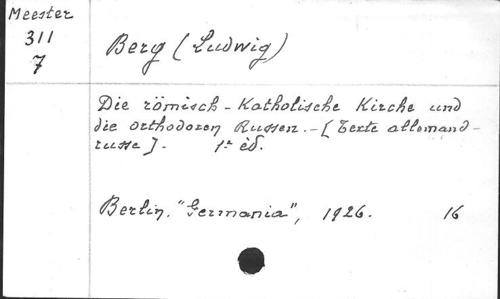 Meester
311
7
Berg (Ludwig)
Die römisch - Katholische Kirche und
die orthodoxen Russen. - [Texte allemand -
russe]. - 1r éd.
Berlin. "Germania", 1926. 16